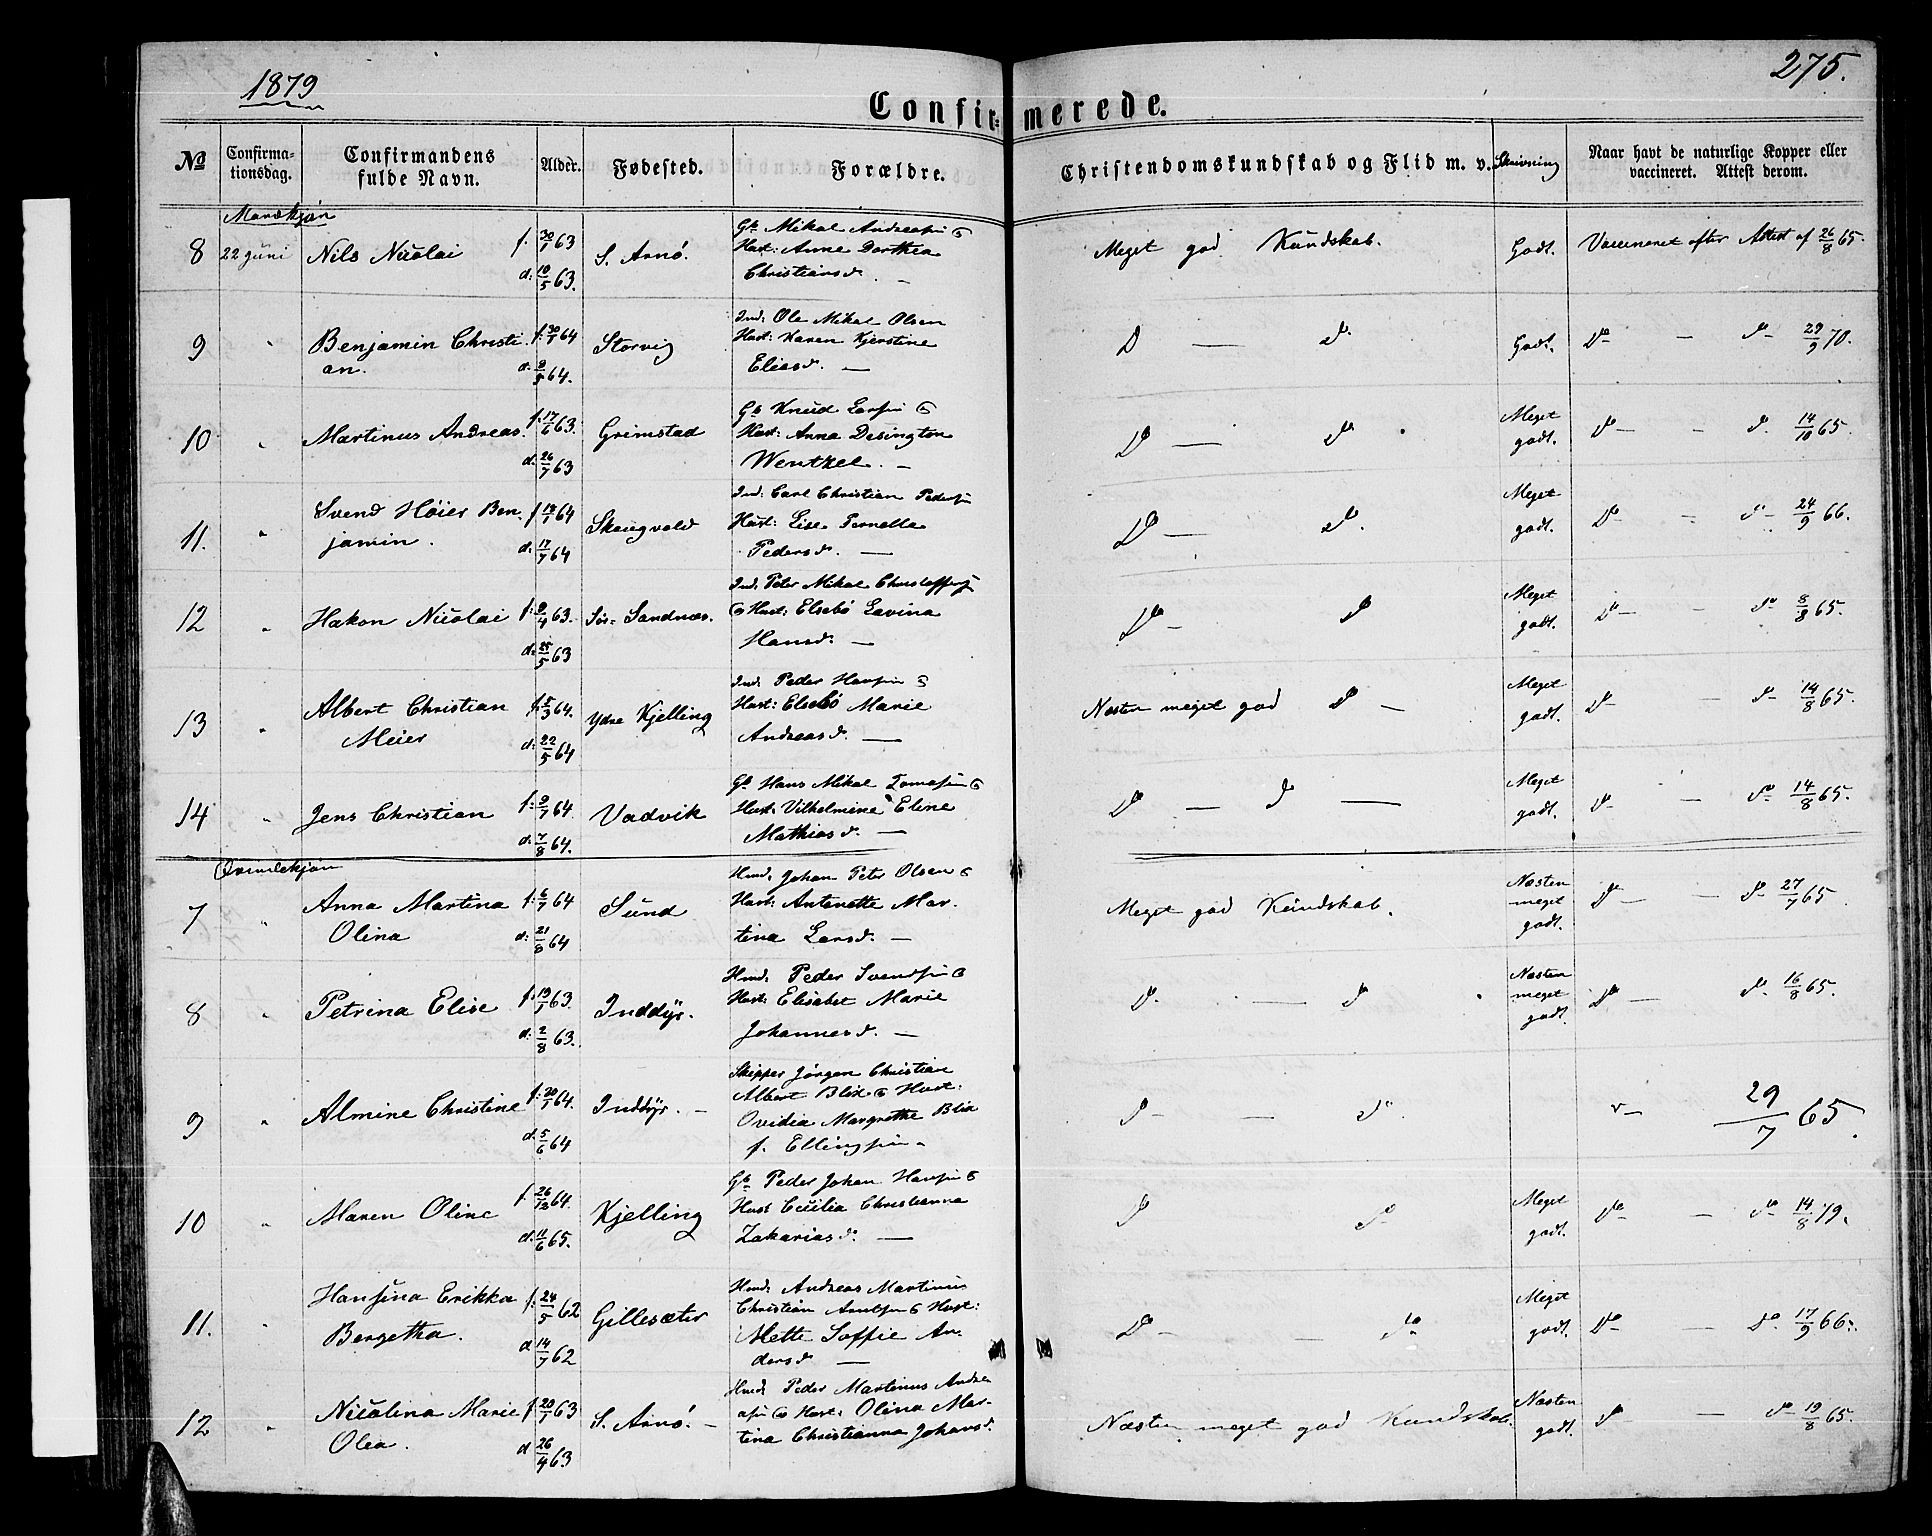 1879
275.
Confirmerede.
No
Confirmationsdag.
Confirmandens fulde Navn.
Alder.
Fødested.
Forældre.
Christendomskundskab og Flid m. v.
Skrivning
Naar havt de naturlige Kopper eller vaccineret. Attest derom.
Mandkjøn
8 22 Juni Nils Nicolai f. 30/1 63 d: 10/5 63. S. Arnø.
Gb Mikal Andreasen &
Hust: Anne Dorthea
Christiansd. —
Meget god Kundskab. Godt. Vaccineret efter Attest af 26/8 65.
9 " Benjamin Christi
an. f: 30/7 64 d: 9/9 64. Storvig
Ind: Ole Mikal Olsen
Hust: Karen Kjerstine
Eliasd. —
Do — do Godt. Do — do 29/9 70.
10 " Martinus Andreas. f: 17/6 63. d: 26/7 63 Grimstad
Gb Knud Larsen &
Hust: Anna Desington
Wentzel. —
Do — do Meget
godt. do — do 14/10 65.
11. " Svend Høier Ben
jamin. f 19/1 64 d: 17/7 64 Skaugvold
Ind: Carl Christian Pedersen
Hust: Lise Pernella
Pedersd. —
Do — do. Meget
godt. Do — do 24/9 66.
12 " Hakon Nicolai f: 9/4 63. d: 25/5 63 Sør-Sandnes.
Ind: Peter Mikal Christoffers
& Hust: Elsebø Lavina
Hansd. —
Do — do Meget
godt. Do — do 8/8 65.
13 " Albert Christian
Meier f. 5/3 64. d: 22/5 64 Ydre Kjelling
Ind: Peder Hansen &
Hust: Elsebø Marie
Andreasd. —
Næsten meget god do — Meget
godt. Do — do 14/8 65.
14 " Jens Christian f: 9/7 64. d: 7/8 64. Vadvik
Gb Hans Mikal Tomasen &
Hust: Vilhelmine Eline
Mathiasd. —
Do — do — Meget
godt. do — do 14/8 65.
Qvindekjøn
7 " Anna Martina
Olina f: 6/7 64 d: 21/8 64 Sund
Hmd: Johan Peter Olsen &
Hust: Antonette Mar
tina Larsd. —
Meget god Kundskab. Næsten
meget
godt. do — do 27/7 65
8 " Petrina Elise f: 19/1 63. d: 2/8 63. Inddyr.
Hmd: Peder Svendsen &
Hust: Elisabet Marie
Johannesd. —
do. — do Næsten
meget
godt. do — do 16/8 65.
9 " Almine Christine f: 20/1 64. d. 5/6 64 Inddyr. —
Skipper Jørgen Christian
Albert Blix & Hust:
Ovidia Margrethe Blix
f. Ellingsen
do — do. 29/7 65.
10 " Maren Oline f. 26/12 64. d: 11/6 65. Kjelling
Gb Peder Johan Hansen &
Hust Cecilia Christianna
Zakariasd. —
do do Meget
godt. do — do 14/8 79.
11. " Hansina Erikka
Bergetha. f: 24/5 62 d 14/7 62 Gillesæter
Hmd: Andreas Martinus
Christian Arntsen & Hust:
Mette Soffie An
dersd —
Do — do Meget
godt. Do — Do 17/9 66.
12 " Nicolina Marie
Olea. f 20/1 63 d 26/4 63 S. Arnø. —
Hmd: Peder Martinus Andre
asen & Hust: Olina Mar
tina Christianna Johansd.
Næsten meget god Kundskab. Næsten
godt. do — do 19/8 65.